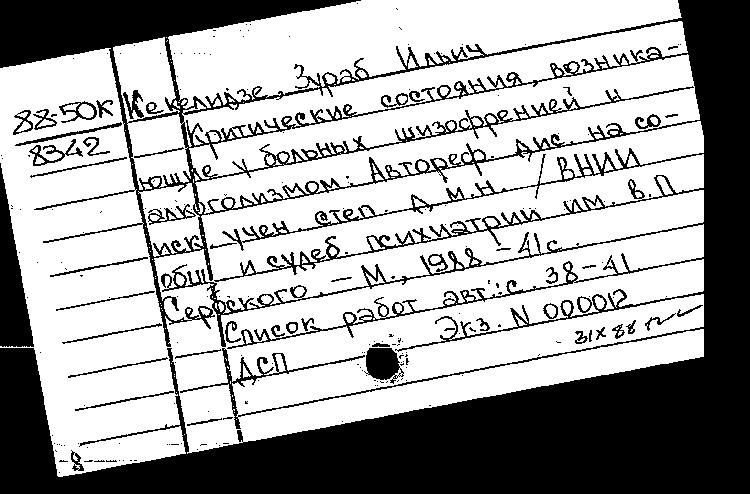 88-50К
8342
Кекелидзе, Зураб Ильич
Критические состояния, возника-
ющие у больных шизофренией и
алкоголизмом: Автореф. дис. на со-
иск. учен. степ. д.м.н. / ВНИИ
общ. и судеб. психиатрии им. В.П.
Сербского. – М., 1988 – 41с.
Список работ авт.: с. 38-41
ДСП Экз. N 000012
31 X 88
8